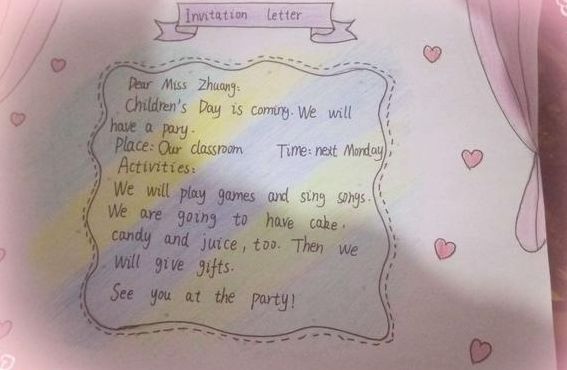 Invitation letter
Dear Miss Zhuang:
Children's Day is coming. We will
have a pary.
Place: Our classroom Time: next Monday
Activities:
We will play games and sing songs.
We are going to have cake,
candy and juice, too. Then we
will give gifts.
See you at the party!